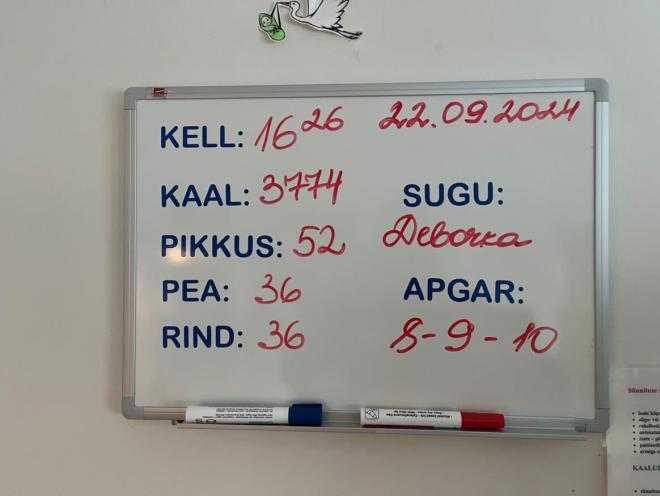 KELL: 16 26 22.09.2024
KAAL: 3774 SUGU:
PIKKUS: 52 Девочка
PEA: 36 APGAR:
RIND: 36 8-9-10